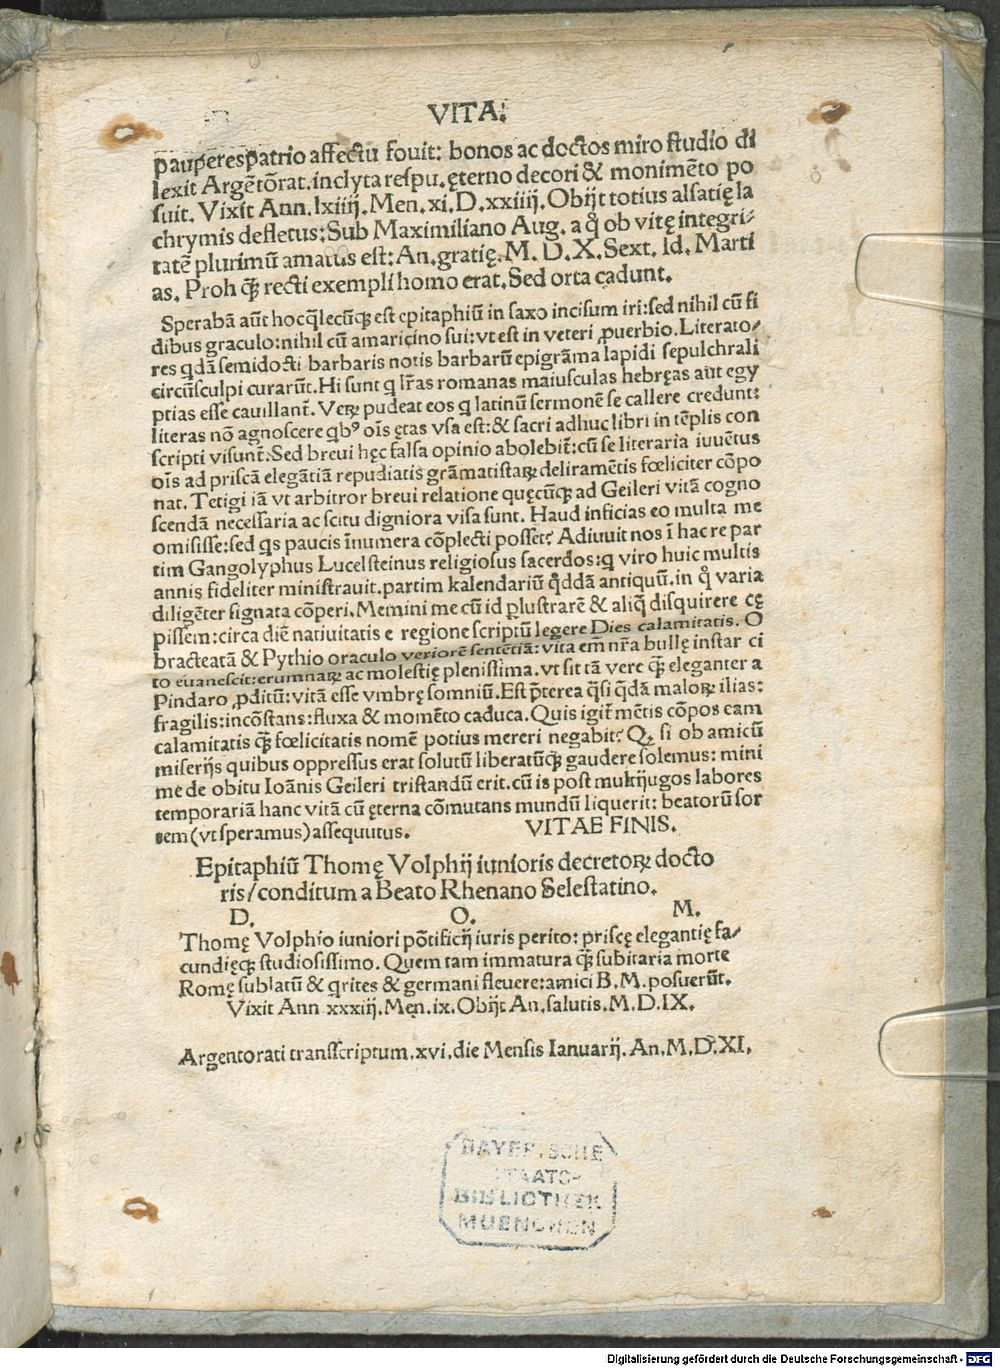 VITA.
pauperes patrio affectu fouit: bonos ac doctos miro studio di
lexit Argẽtõrat. inclyta respu. ęterno decori & monimẽto po
suit. Vixit Ann. lxiiij. Men. xi. D. xxiiij. Obijt totius alsatię la
chrymis defletus: Sub Maximiliano Aug. a q̊ ob vitę integri⸗
tatẽ plurimũ amatus est: An. gratię. M. D. X. Sext. Id. Marti
as. Proh ꝙ̃ recti exempli homo erat. Sed orta cadunt.
Sperabã aũt hoc qłecũꝙ est epitaphiũ in saxo incisum iri: sed nihil cũ fi
dibus graculo: nihil cũ amaricino sui: vt est in veteri ꝓuerbio. Literato⸗
res qdã semidocti barbaris notis barbarũ epigrãma lapidi sepulchrali
circũsculpi curarũt. Hi sunt q lr̃as romanas maiusculas hebręas aut egy
ptias esse cauillant̃. Veꝝ pudeat eos q latinũ sermonẽ se callere credunt:
literas nõ agnoscere qbꝰ oĩs ętas vsa est: & sacri adhuc libri in tẽplis con
scripti visunt̃. Sed breui hęc falsa opinio abolebit̃: cũ se literaria iuuẽtus
oĩs ad priscã elegãtiã repudiatis grãmatistaꝝ deliramẽtis fœliciter cõpo
nat. Tetigi iã vt arbitror breui relatione quęcũꝙ ad Geileri vitã cogno
scendã necessaria ac scitu digniora visa sunt. Haud inficias eo multa me
omisisse: sed qs paucis ĩnumera cõplecti posset? Adiuuit nos ĩ hac re par
tim Gangolyphus Lucelsteinus religiosus sacerdos: q viro huic multis
annis fideliter ministrauit. partim kalendariũ q̊ddã antiquũ. in q̊ varia
diligẽter signata cõperi. Memini me cũ id ꝑlustrarẽ & aliq̃ disquirere cę
pissem: circa diẽ natiuitatis e regione scriptũ legere Dies calamitatis. O
bracteatã & Pythio oraculo veriorẽ sentẽtiã: vita em̃ nr̃a bullę instar ci
to euanescit: erumnaꝝ ac molestię plenissima. vt sit tã vere ꝙ̃ eleganter a
Pindaro ꝓditũ: vitã esse vmbrę somniũ. Est p̃terea q̃si q̃dã maloꝝ ilias:
fragilis: incõstans: fluxa & momẽto caduca. Quis igit̃ mẽtis cõpos eam
calamitatis ꝙ̃ fœlicitatis nomẽ potius mereri negabit? Qꝫ si ob amicũ
miserijs quibus oppressus erat solutũ liberatũꝙ gaudere solemus: mini
me de obitu Ioãnis Geileri tristandũ erit. cũ is post multijugos labores
temporariã hanc vitã cũ ęterna cõmutans mundũ liquerit: beatorũ sor
tem (vt speramus) assequutus. VITAE FINIS.
Epitaphiũ Thomę Volphij iunioris decretoꝝ docto
ris/conditum a Beato Rhenano Selestatino.
D. O. M.
Thomę Volphio iuniori põtificij iuris perito: priscę elegantię fa⸗
cundięꝙ studiosissimo. Quem tam immatura ꝙ̃ subitaria morte
Romę sublatũ & qrites & germani fleuere: amici B. M. posuerũt.
Vixit Ann xxxiij. Men. ix. Obijt An. salutis. M. D. IX.
Argentorati transscriptum. xvi. die Mensis Ianuarij. An. M. D. XI.
BAYERISCHE
STAATS-
BIBLIOTHEK
MUENCHEN
Digitalisierung gefördert durch die Deutsche Forschungsgemeinschaft - DFG